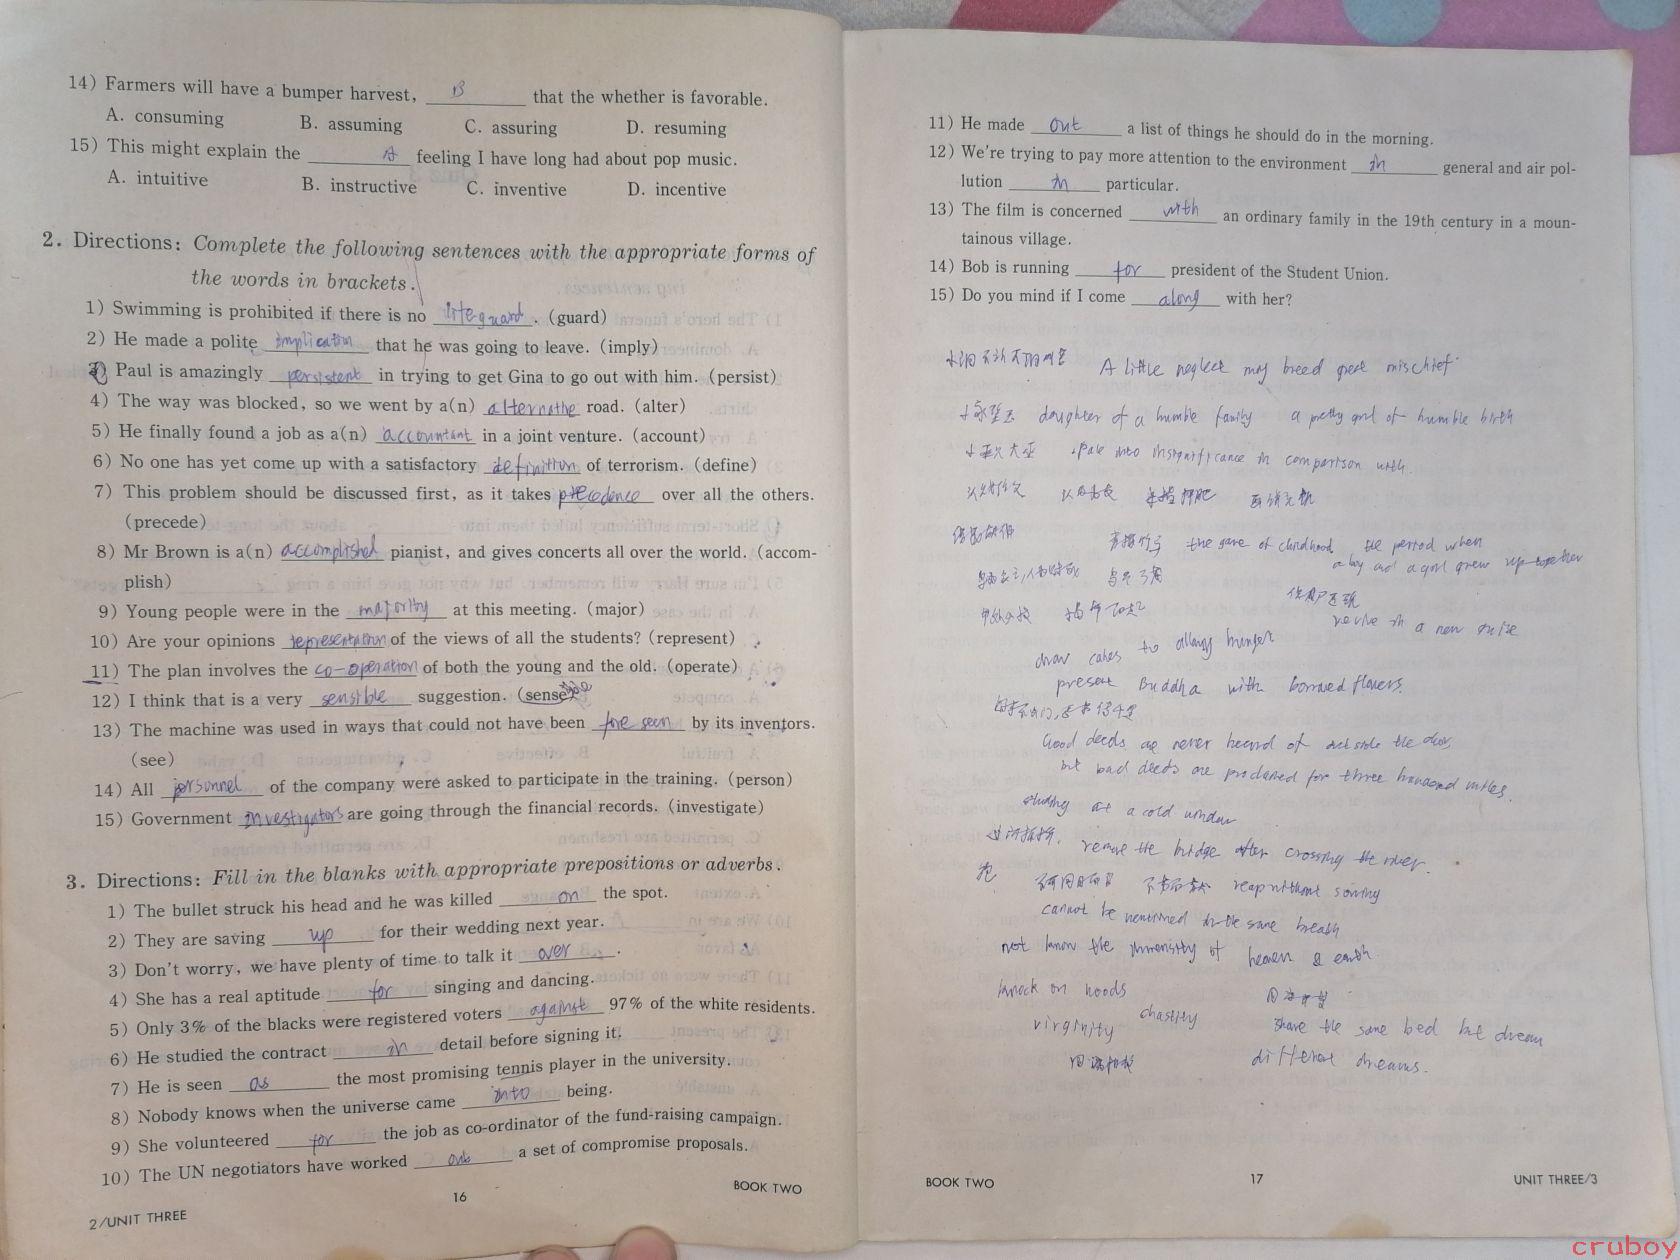 14) Farmers will have a bumper harvest, B that the whether is favorable.
A. consuming B. assuming C. assuring D. resuming
15) This might explain the A feeling I have long had about pop music.
A. intuitive B. instructive C. inventive D. incentive
2. Directions: Complete the following sentences with the appropriate forms of
the words in brackets.
1) Swimming is prohibited if there is no lifeguard. (guard)
2) He made a polite implication that he was going to leave. (imply)
3) Paul is amazingly persistent in trying to get Gina to go out with him. (persist)
4) The way was blocked, so we went by a(n) road. (alter)
5) He finally found a job as a(n) accountant in a joint venture. (account)
6) No one has yet come up with a satisfactory definition of terrorism. (define)
7) This problem should be discussed first, as it takes precedence over all the others.
(precede)
8) Mr Brown is a(n) accomplished pianist, and gives concerts all over the world. (accom-
plish)
9) Young people were in the majority at this meeting. (major)
10) Are your opinions of the views of all the students? (represent)
11) The plan involves the co-operation of both the young and the old. (operate)
12) I think that is a very sensible suggestion. (sense)
13) The machine was used in ways that could not have been foreseen by its inventors.
(see)
14) All personnel of the company were asked to participate in the training. (person)
15) Government investigators are going through the financial records. (investigate)
3. Directions: Fill in the blanks with appropriate prepositions or adverbs.
1) The bullet struck his head and he was killed on the spot.
2) They are saving up for their wedding next year.
3) Don't worry, we have plenty of time to talk it over.
4) She has a real aptitude for singing and dancing.
5) Only 3% of the blacks were registered voters against 97% of the white residents.
6) He studied the contract in detail before signing it.
7) He is seen as the most promising tennis player in the university.
8) Nobody knows when the universe came into being.
9) She volunteered for the job as co-ordinator of the fund-raising campaign.
10) The UN negotiators have worked out a set of compromise proposals.
16
BOOK TWO
2/UNIT THREE
11) He made out a list of things he should do in the morning.
12) We're trying to pay more attention to the environment in general and air pol-
lution in particular.
13) The film is concerned with an ordinary family in the 19th century in a moun-
tainous village.
14) Bob is running for president of the Student Union.
15) Do you mind if I come along with her?
A little neglect may breed great mischief
小家碧玉 daughter of a humble family a pretty girl of humble birth
小巫见大巫 pale into insignificance in comparison with
the game of childhood the period when
a boy and a girl grew up together
revive in a new guise
draw cakes to allay hunger
present Buddha with borrowed flowers.
Good deeds are never heard of outside the door,
but bad deeds are proclaimed for three hundred miles.
studying at a cold window
过河拆桥, remove the bridge after crossing the river.
不劳而获 reap without sowing
cannot be mentioned in the same breath
not know the immensity of heaven & earth
knock on woods
virginity chastity
同床异梦
share the same bed but dream
different dreams.
BOOK TWO
17
UNIT THREE/3
cruboy